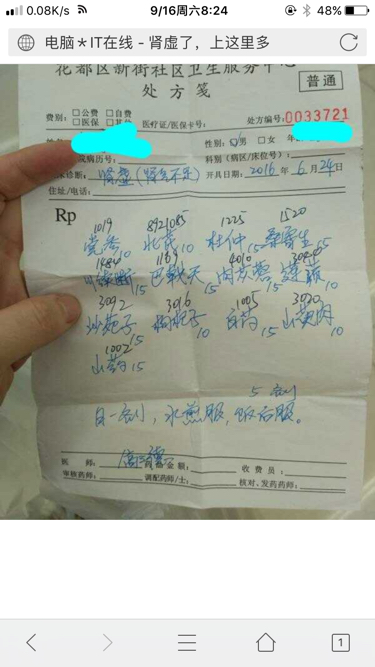 0.08K/s 9/16周六8:24 48%
电脑*IT在线 - 肾虚了，上这里多
花都区新街社区卫生服务中心
处方笺
普通
费别：□公费 □自费
□医保 □其他 医疗证/医保卡号： 处方编号：0033721
性别：☑男 □女
院病历号： 科别（病区/床位号）：
诊断：肾虚（肾气不足） 开具日期：2016年6月24日
住址/电话：
Rp
1019 8921085 1225 1520
党参10 北芪10 杜仲15 桑寄生15
1484 1169 4010
川续断15 巴戟天15 肉苁蓉15
3092 3016 1005 3020
沙苑子15 枸杞子10 白芍15 山萸肉10
1002
山药15
5剂
日一剂，水煎服，饭后服。
医 师： 药品金额： 收 费 员：
审核药师： 调配药师/士： 核对、发药药师：
1